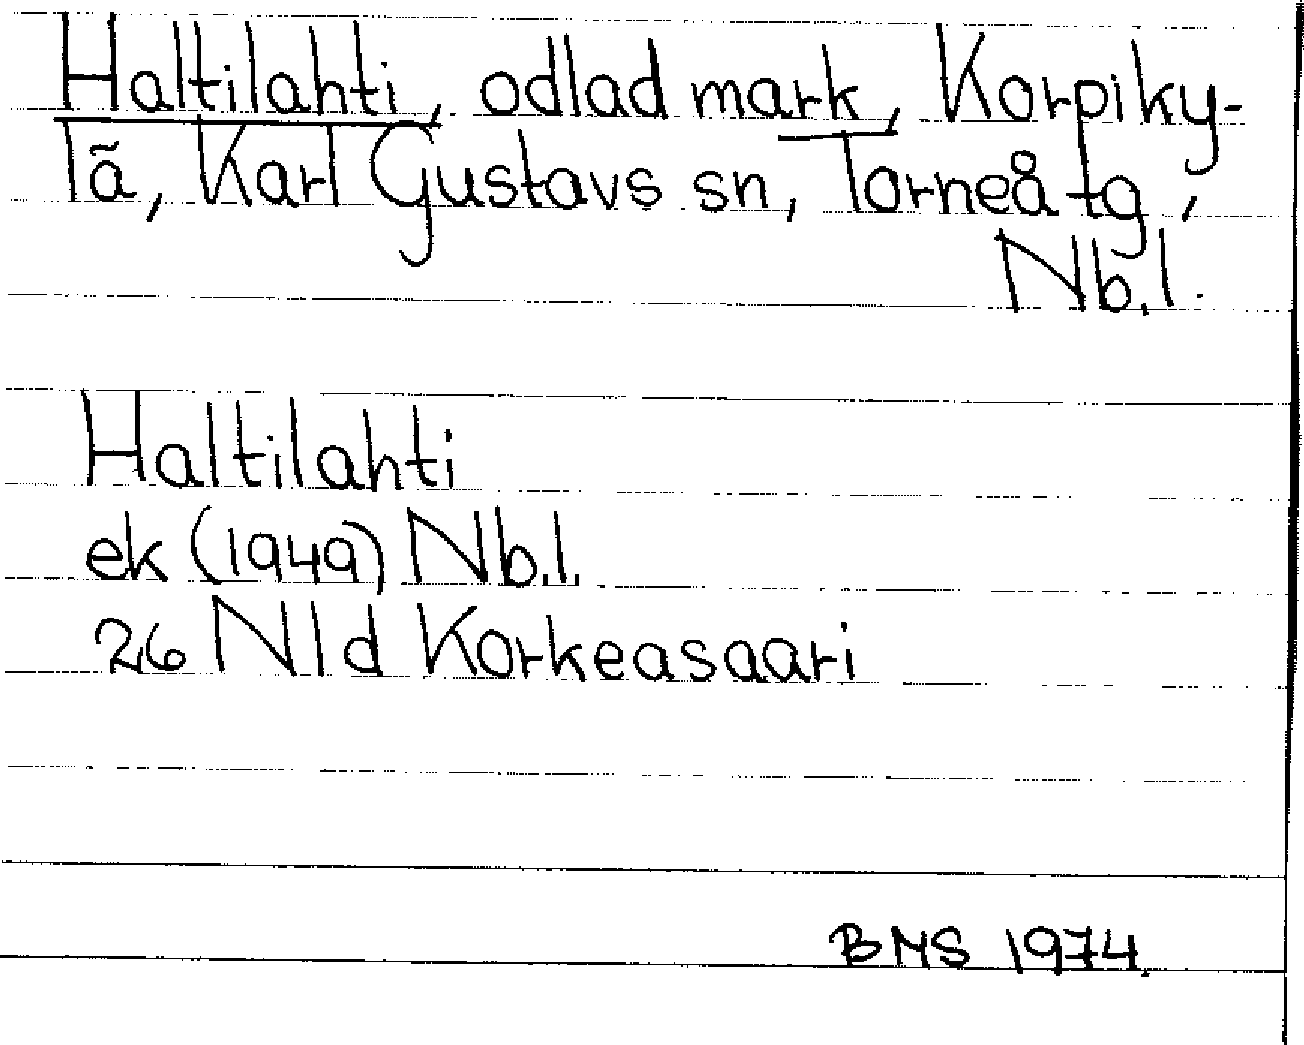 Haltilahti, odlad mark, Korpiky-
lä, Karl Gustavs sn, Torneå tg,
Nb.l.
Haltilahti
ek (1949) Nb.l.
26 Nld Korkeasaari
BMS 1974.